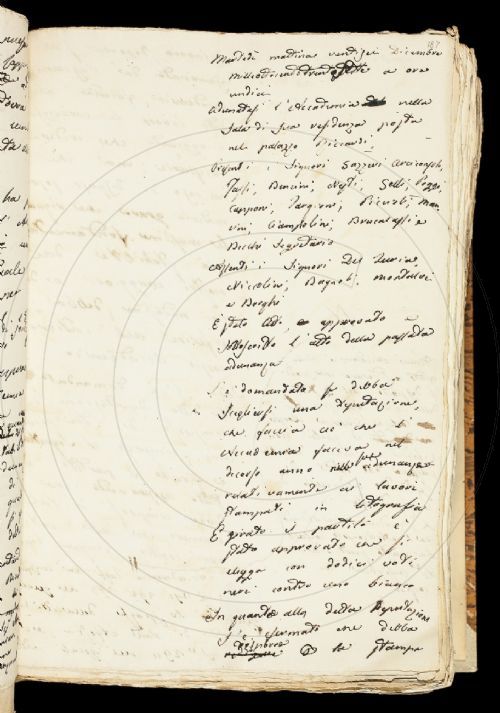 187
Martedì mattina ventisei Dicembre
a ore
undici
Adunatasi l'Accademia nella
Sala di sua residenza posta
nel palazzo Riccardi;
Presenti i Signori Sazzeri Arciconsolo,
Tassi, Bencini, Nesti, Selli, Pozzo,
Capponi, Targioni, Piccioli, Man-
nini, Ciampolini, Brucalassi e
Becchi Segretario
Assenti i Signori Del Furia,
Niccolini, Bagnoli, Montalvi
e Borghi
È stato letto, approvato e
sottoscritto l'atto della passata
adunanza
Si è domandato se debba
scegliersi una Deputazione,
che faccia ciò che l'
Accademia faceva nel
decorso anno nelle sue adunanze
relativamente ai lavori
stampati in litografia
E girato il partito è
stato approvato che si
elegga con dodici voti
neri contro uno bianco
In quanto alla detta Deputazione
s'è fermato che debba
la stampa